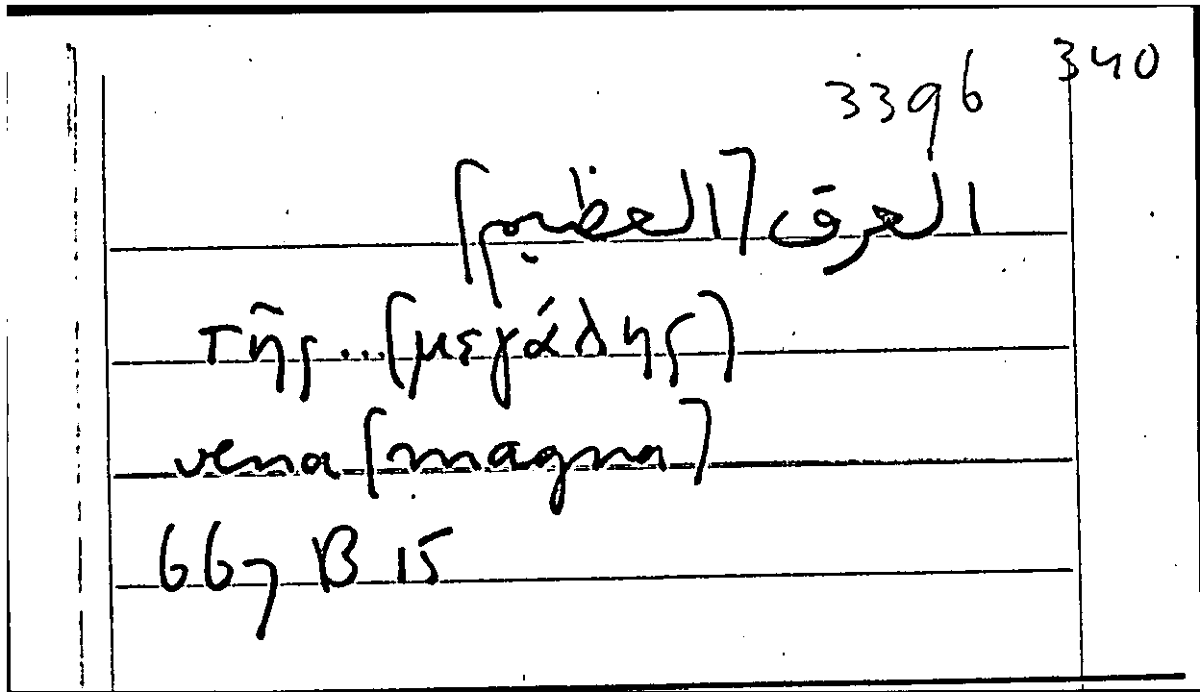 340
3396
العرق [العظيم]
τῆς...(μεγάλης)
vena [magna]
667 B 15